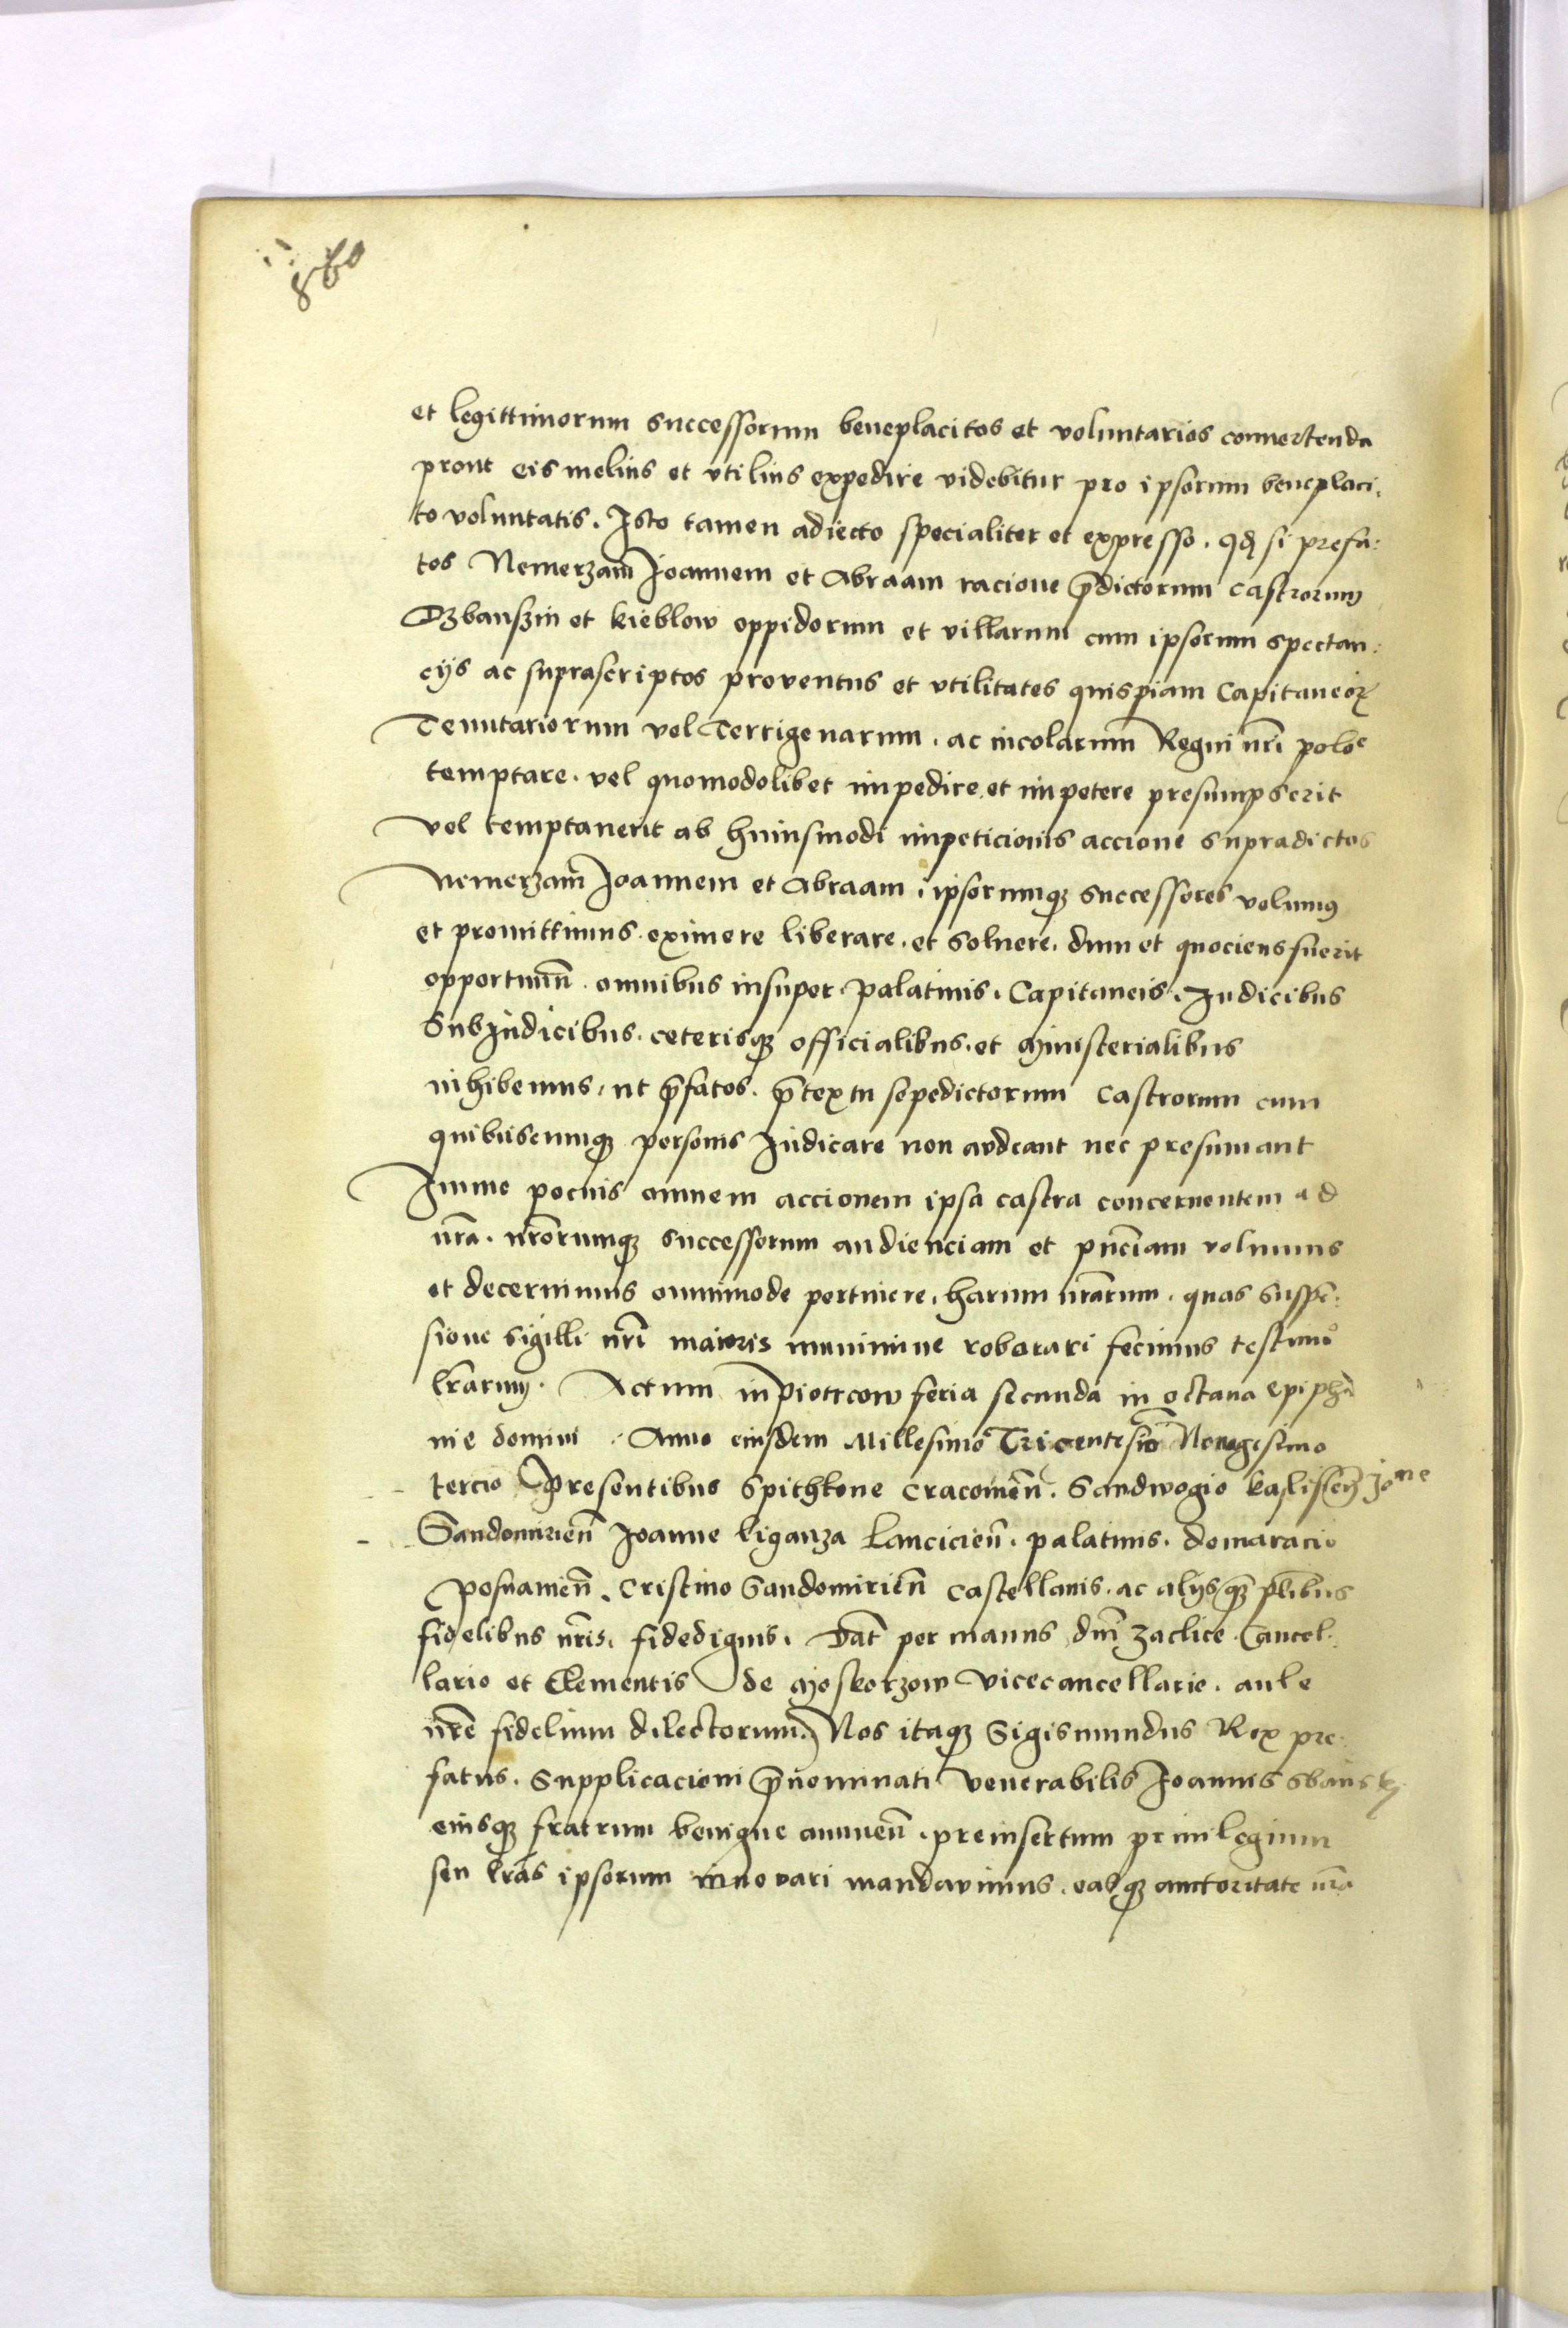 860
et legittimorum successorum beneplacitos et voluntarios convertenda
prout eis melius et utilius expedire videbitur pro ipsorum beneplaci:
to voluntatis. Isto tamen adiecto specialiter et expresso. qd si prefa:
tos Nemerzam Joannem et Abraam racione p̄dictorum castrorum
Dzbanszin et kieblow oppidorum et villarum cum ipsorum spectan:
cijs ac suprascriptos proventus et vtilitates quispiam Capitaneoꝝ
Tenutariorum vel Terrigenarum. ac incolarum Regni nr̄i poloᵉ
temptare. vel quomodolibet impedire et impetere presumpserit
vel temptaverit ab huiusmodi impeticionis accione supradictos
Nemerzam Joannem et Abraam. ipsorumqꝫ successores volumus
et promittimus. eximere liberare. et solvere. dum et quociens fuerit
opportunū. omnibus insuper. palatinis. Capitaneis. Judicibus
SubJudicibus. ceterisqꝫ officialibus. et ministerialibus
inhibemus. ut p̄fatos. p̄textu sepedictorum castrorum cum
quibuscumqꝫ personis Judicare non audeant nec presumant
Immo pocius omnem accionem ipsa castra concernentem ad
nr̄a. nr̄orumqꝫ successorum audienciam et pn̄ciam volumus
et decernimus omnimode pertinere. harum nr̄arum. quas suspē:
sione sigilli nr̄i maioris munimine roborari fecimus testimoº
lr̄arum. Actum in piotrcow feria secunda in octava epipha
nie domini. Anno eiusdem Millesimo Tricentesiō Nonagesimo
tercio Presentibus Spithkone Cracovień. Sandwogio kalisseń Joⁿᵉ
Sandomirień Joanne liganza Lancicień. palatinis. domaracio
posnanień. Cristino Sandomirień castellanis. ac alijsqꝫ pl̄ibus
fidelibus nr̄is. fidedignis. Dat̄ per manus dn̄i zaclice Cancel:
lario et Clementis de Moskorzow vicecancellario. aule
nr̄e fidelium dilectorum. Nos itaqꝫ Sigismundus Rex pre:
fatus. Supplicacioni p̄nominati venerabilis Joannis sbansky
eiusqꝫ fratrum benigne annueń. preinsertum privilegium
seu lr̄as ipsorum innovari mandavimus. easqꝫ auctoritate nr̄a